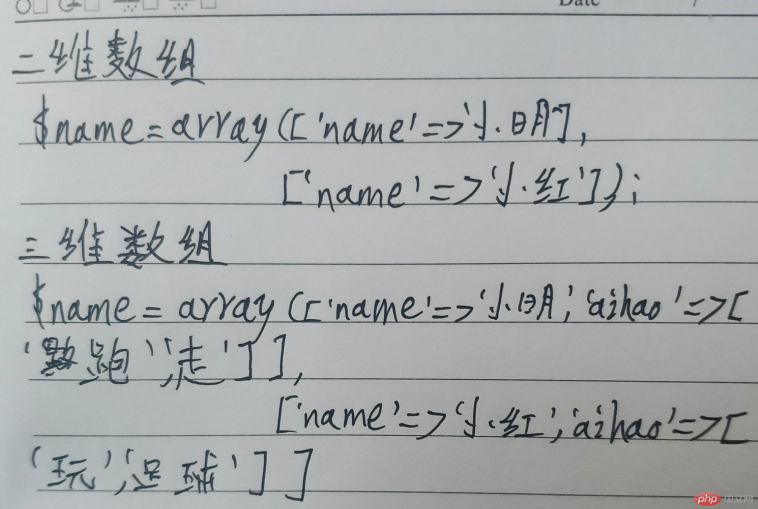 Date
二维数组
$name=array(['name'=>'小明'],
['name'=>'小红']);
三维数组
$name=array(['name'=>'小明','aihao'=>[
'跑','走']],
['name'=>'小红','aihao'=>[
'玩','足球']]
php中文网